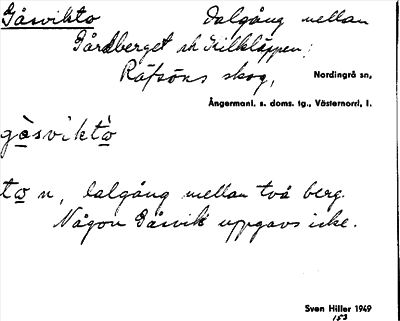 Gåsvikto dalgång mellan
Gårdberget ock Kilkläppen;
Räfsöns skog, Nordingrå sn,
Ångermanl. s. doms. tg., Västernorrl, l.
gåsviktò
to n, dalgång mellan två berg.
Någon Gåsvik uppgavs icke.
Sven Hiller 1949
153